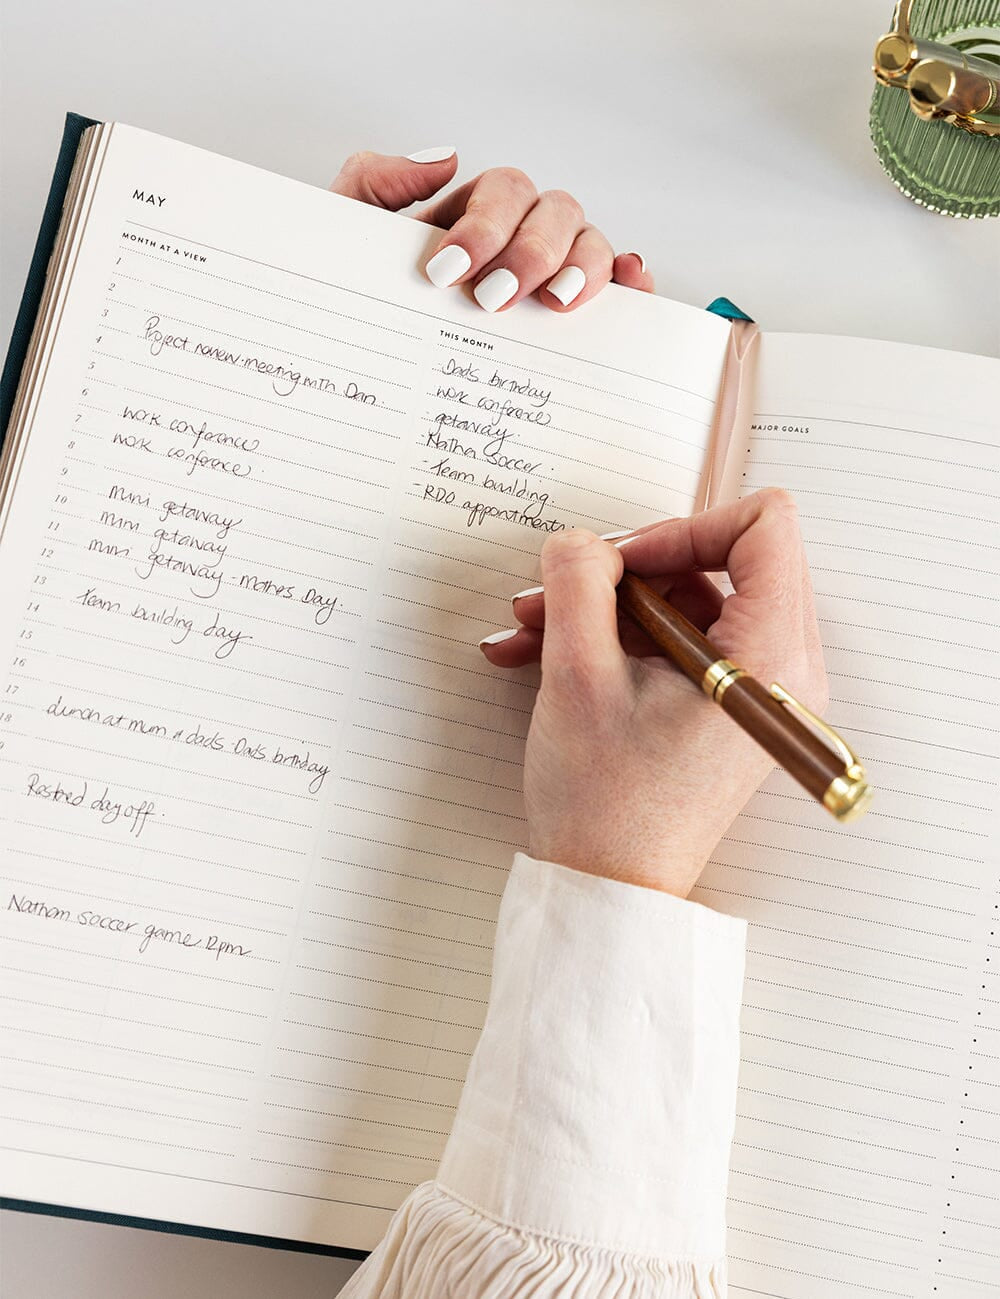 MAY
MONTH AT A VIEW
1
2
3 Project renew meeting with Dan.
4
5
6 work conference
7 work conference.
8
9 mini getaway
10 mini getaway
11 mini getaway - mothers Day.
12
13 Team building day
14
15
16
17 Lunch at mum & dads Dads birthday
18
9
Rostred day off.
Nathan soccer game 12pm
THIS MONTH
Dads birthday
work conference
getaway.
Nathan Soccer.
- Team building.
- RDO appointments
MAJOR GOALS